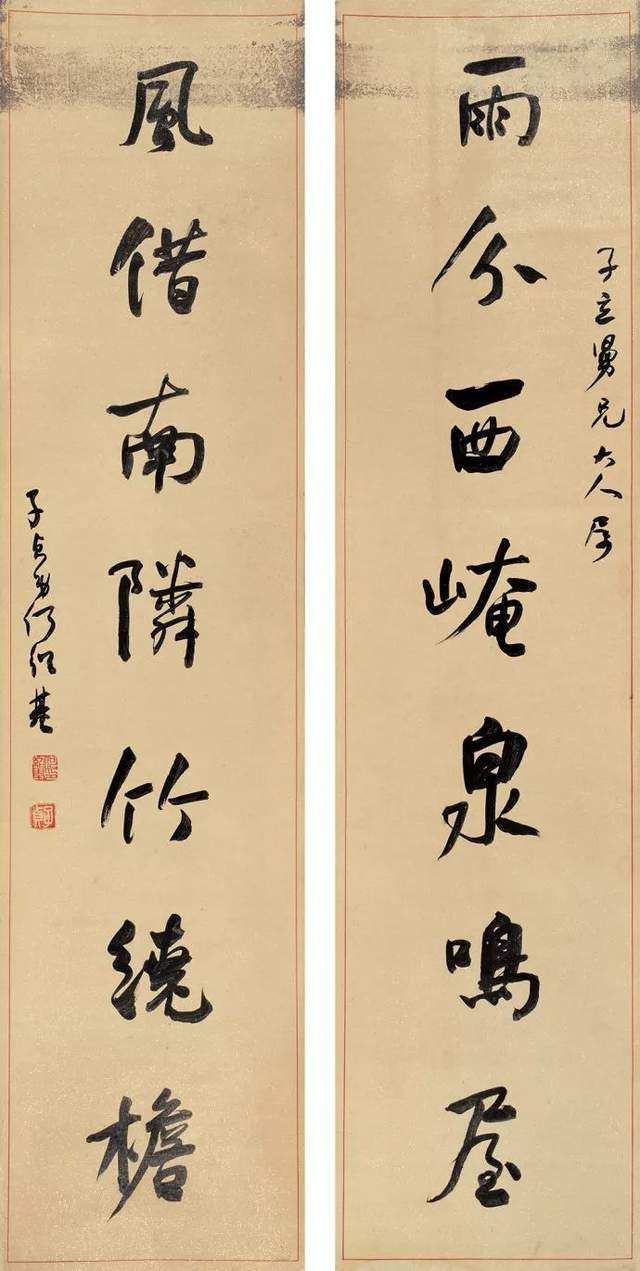 子立舅兄大人屬
雨分西崦泉鳴屋
風借南隣竹繞檐
子貞弟何紹基
子貞